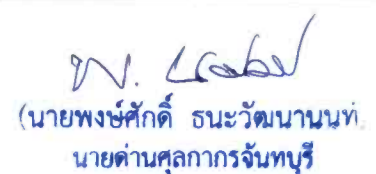 (นายพงษ์ศักดิ์ ธนะวัฒนานนท์
นายด่านศุลกากรจันทบุรี